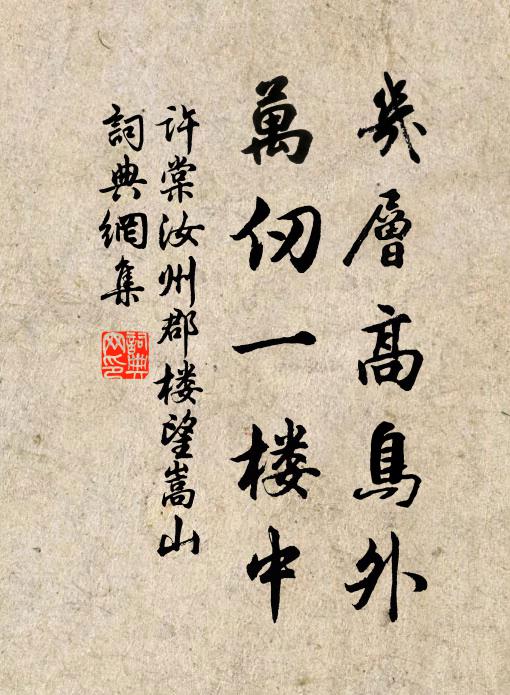 幾層高鳥外
萬仞一楼中
许棠汝州郡楼望嵩山
詞典網集
詞典网印